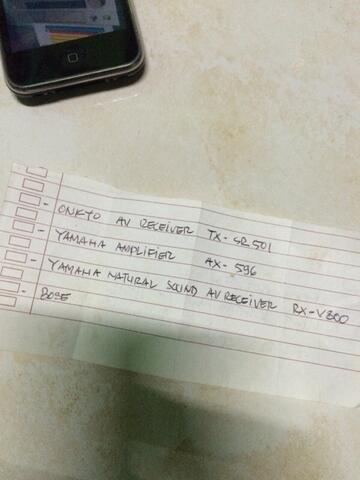 - ONKYO AV RECEIVER TX-SR501
- YAMAHA AMPLIFIER AX-596
- YAMAHA NATURAL SOUND AV RECEIVER RX-V800
- BOSE